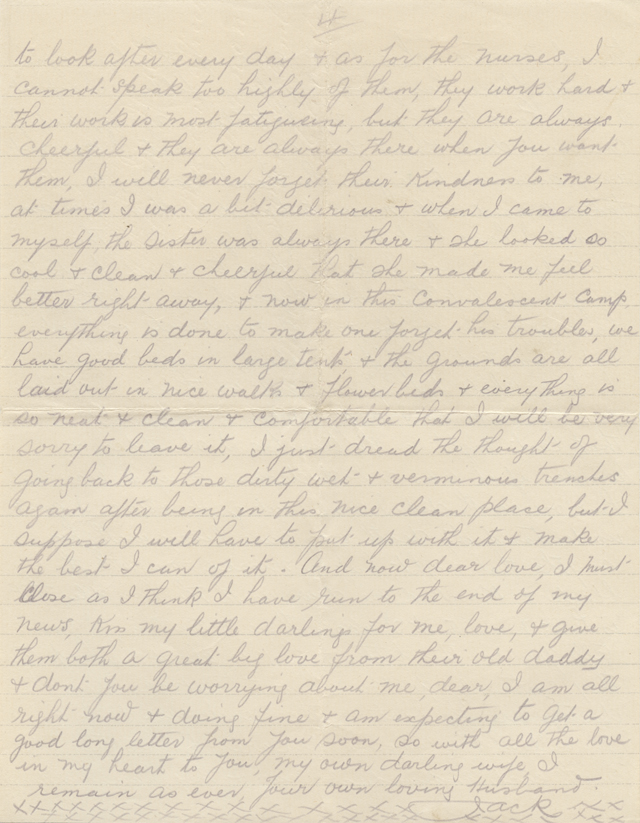 4
to look after every day & as for the nurses, I
cannot speak too highly of them, they work hard &
their work is most fatigueing, but they are always
cheerful & they are always there when you want
them, I will never forget their kindness to me,
at times I was a bit delirious & when I came to
myself, the Sister was always there & she looked so
cool & clean & cheerful that she made me feel
better right away, & now in this Convalescent Camp
everything is done to make one forget his troubles, we
have good beds in large tents & the grounds are all
laid out in nice walks & flower beds & everything is
so neat & clean & comfortable that I will be very
sorry to leave it, I just dread the thought of
going back to those dirty wet & verminous trenches
again after being in this nice clean place, but I
suppose I will have to put up with it & make
the best I can of it. And now dear love, I must
close as I think I have run to the end of my
news, Kiss my little darlings for me, love, & give
them both a great big love from their old daddy
& dont you be worrying about me, dear, I am all
right now & doing fine & am expecting to get a
good long letter from you soon, so with all the love
in my heart to you, my own darling wife, I
remain as ever, your own loving Husband.
xxxxxxxxxxxxxxxxxxxx Jack xx